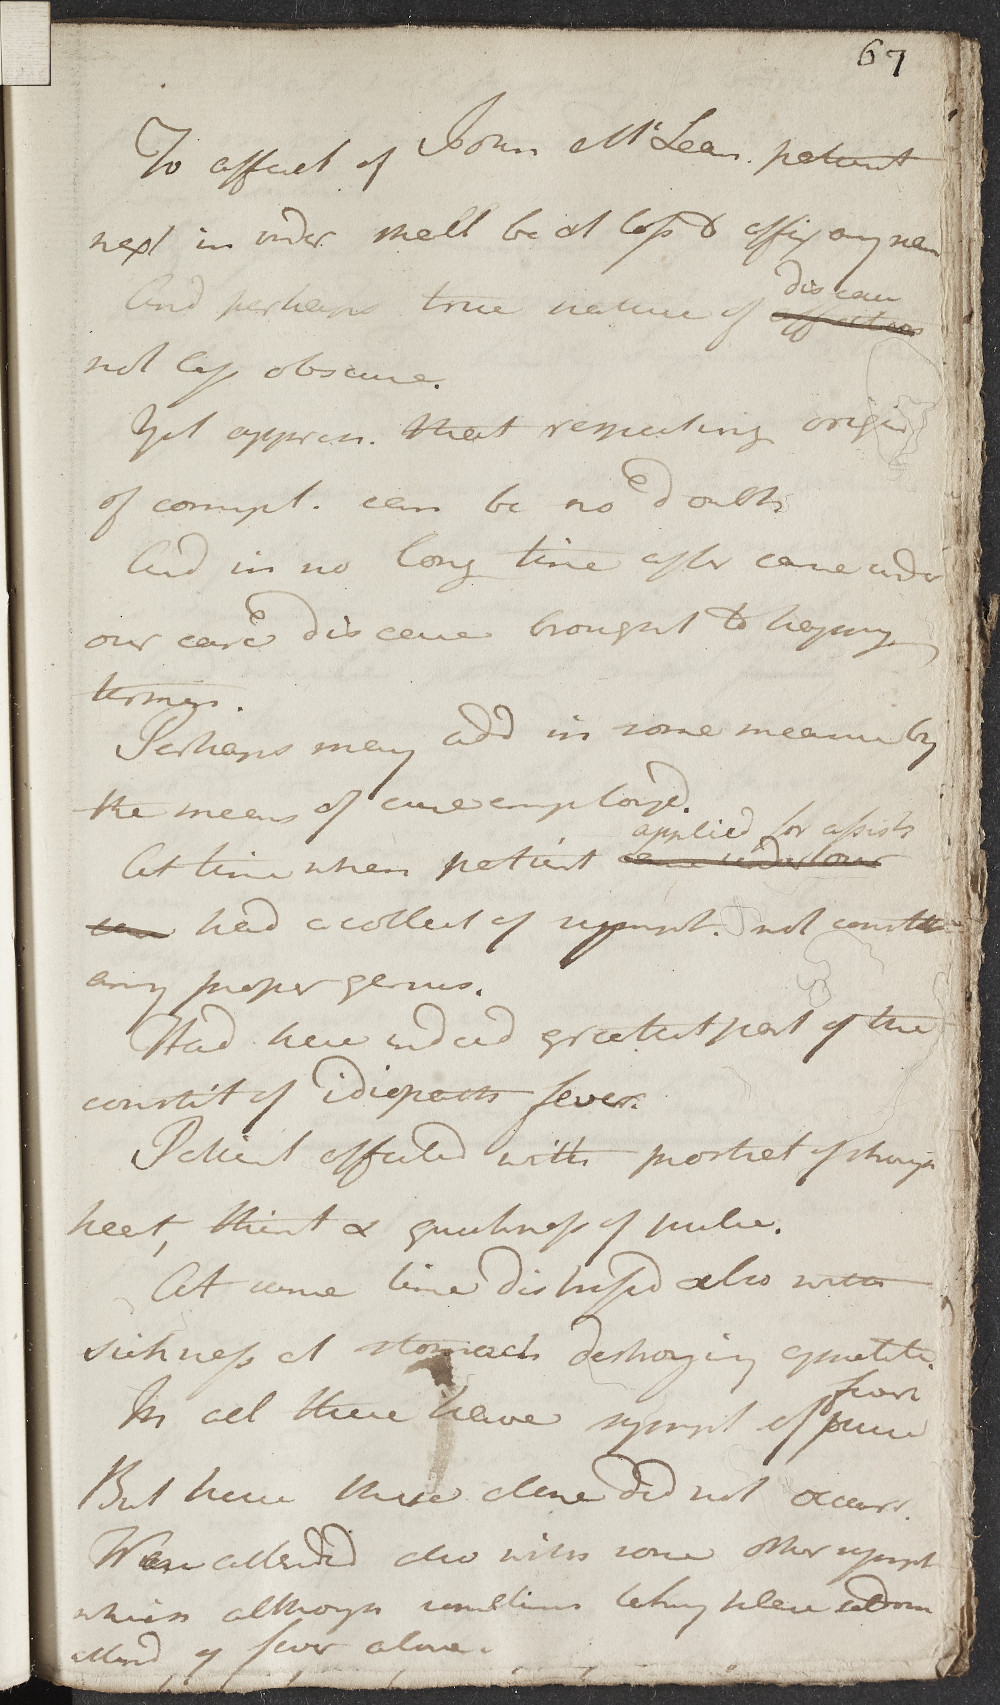 67
To affect of John McLean. patient
next in order shall be at loss to affix any name
And perhaps true nature of disease affection
not less obscure.
Yet appren. that respecting origin
of compl. can be no doubt
And in no long time after came under
our care disease brought to happy
termin.
Perhaps may add in some measure by
the means of cure employed.
At time when patient applied for assist came under our
care had a collect of sympt. not constit
any proper genus.
Had here indeed greatest part of those
constit of idiopath fever.
Patient affected with prostrat of strength
heat, thirst & quickness of pulse.
At same time distressed also with
sickness at stomach destroying appetite.
In all these have sympt of fever
But here these alone did not occurr.
Were attended also with some other sympt
which although sometimes taking place seldom
attend of fever alone.